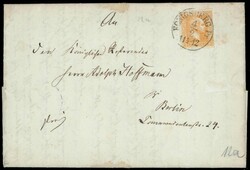 An
den Königlichen Referendar
Herrn Adolph Hoffmann
zu
Berlin
Commandantenstr. 29.
frei